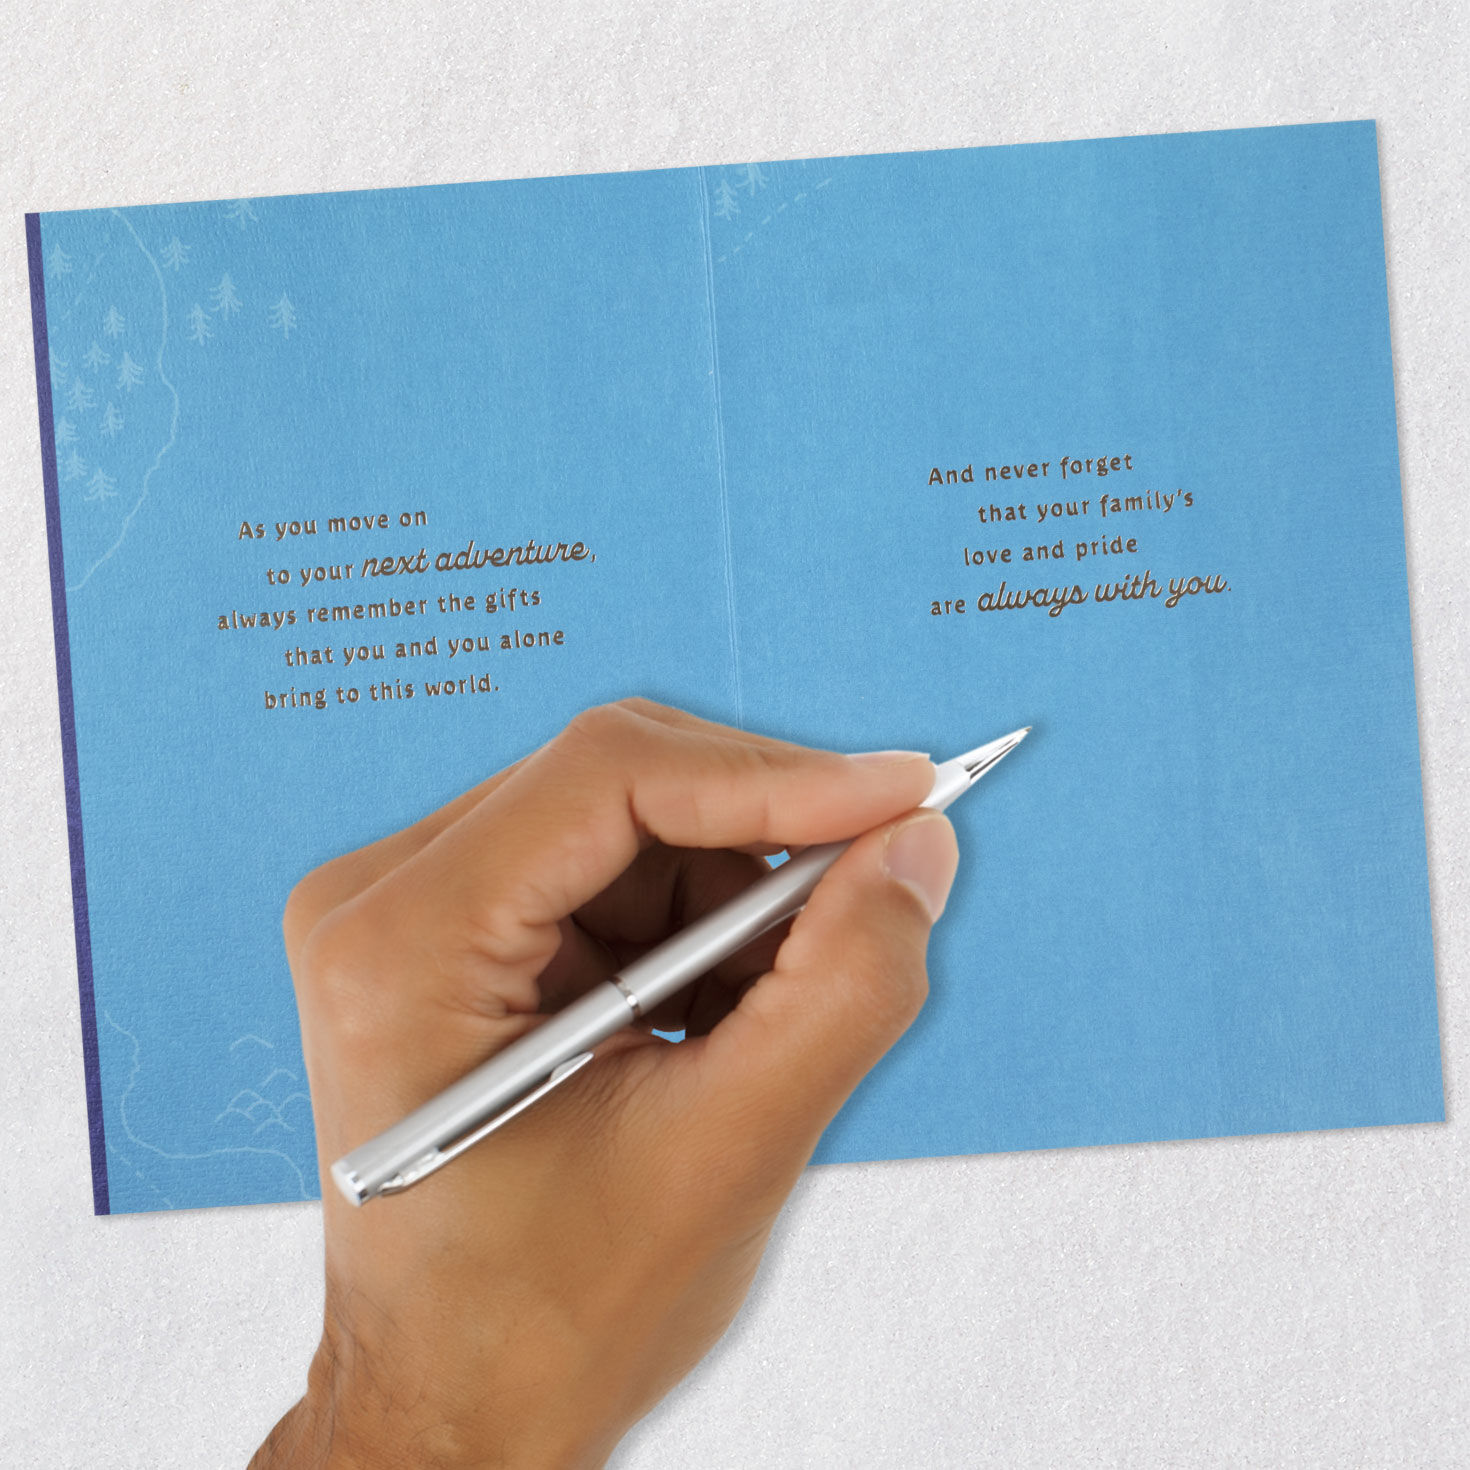 As you move on
to your next adventure,
always remember the gifts
that you and you alone
bring to this world.
And never forget
that your family's
love and pride
are always with you.